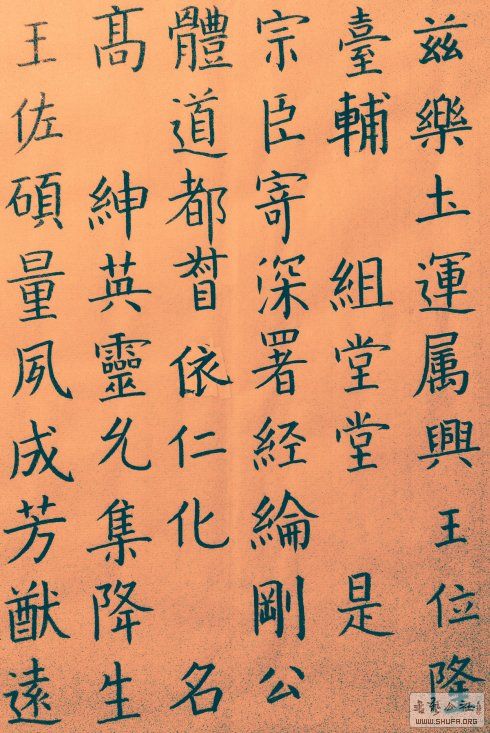 茲樂土運属興王位隆
臺輔 組堂堂 是
宗臣寄深署経綸剛公
體道都督依仁化 名
高 紳英靈允集降生
王佐碩量夙成芳猷遠
WWW.SHUFA.ORG